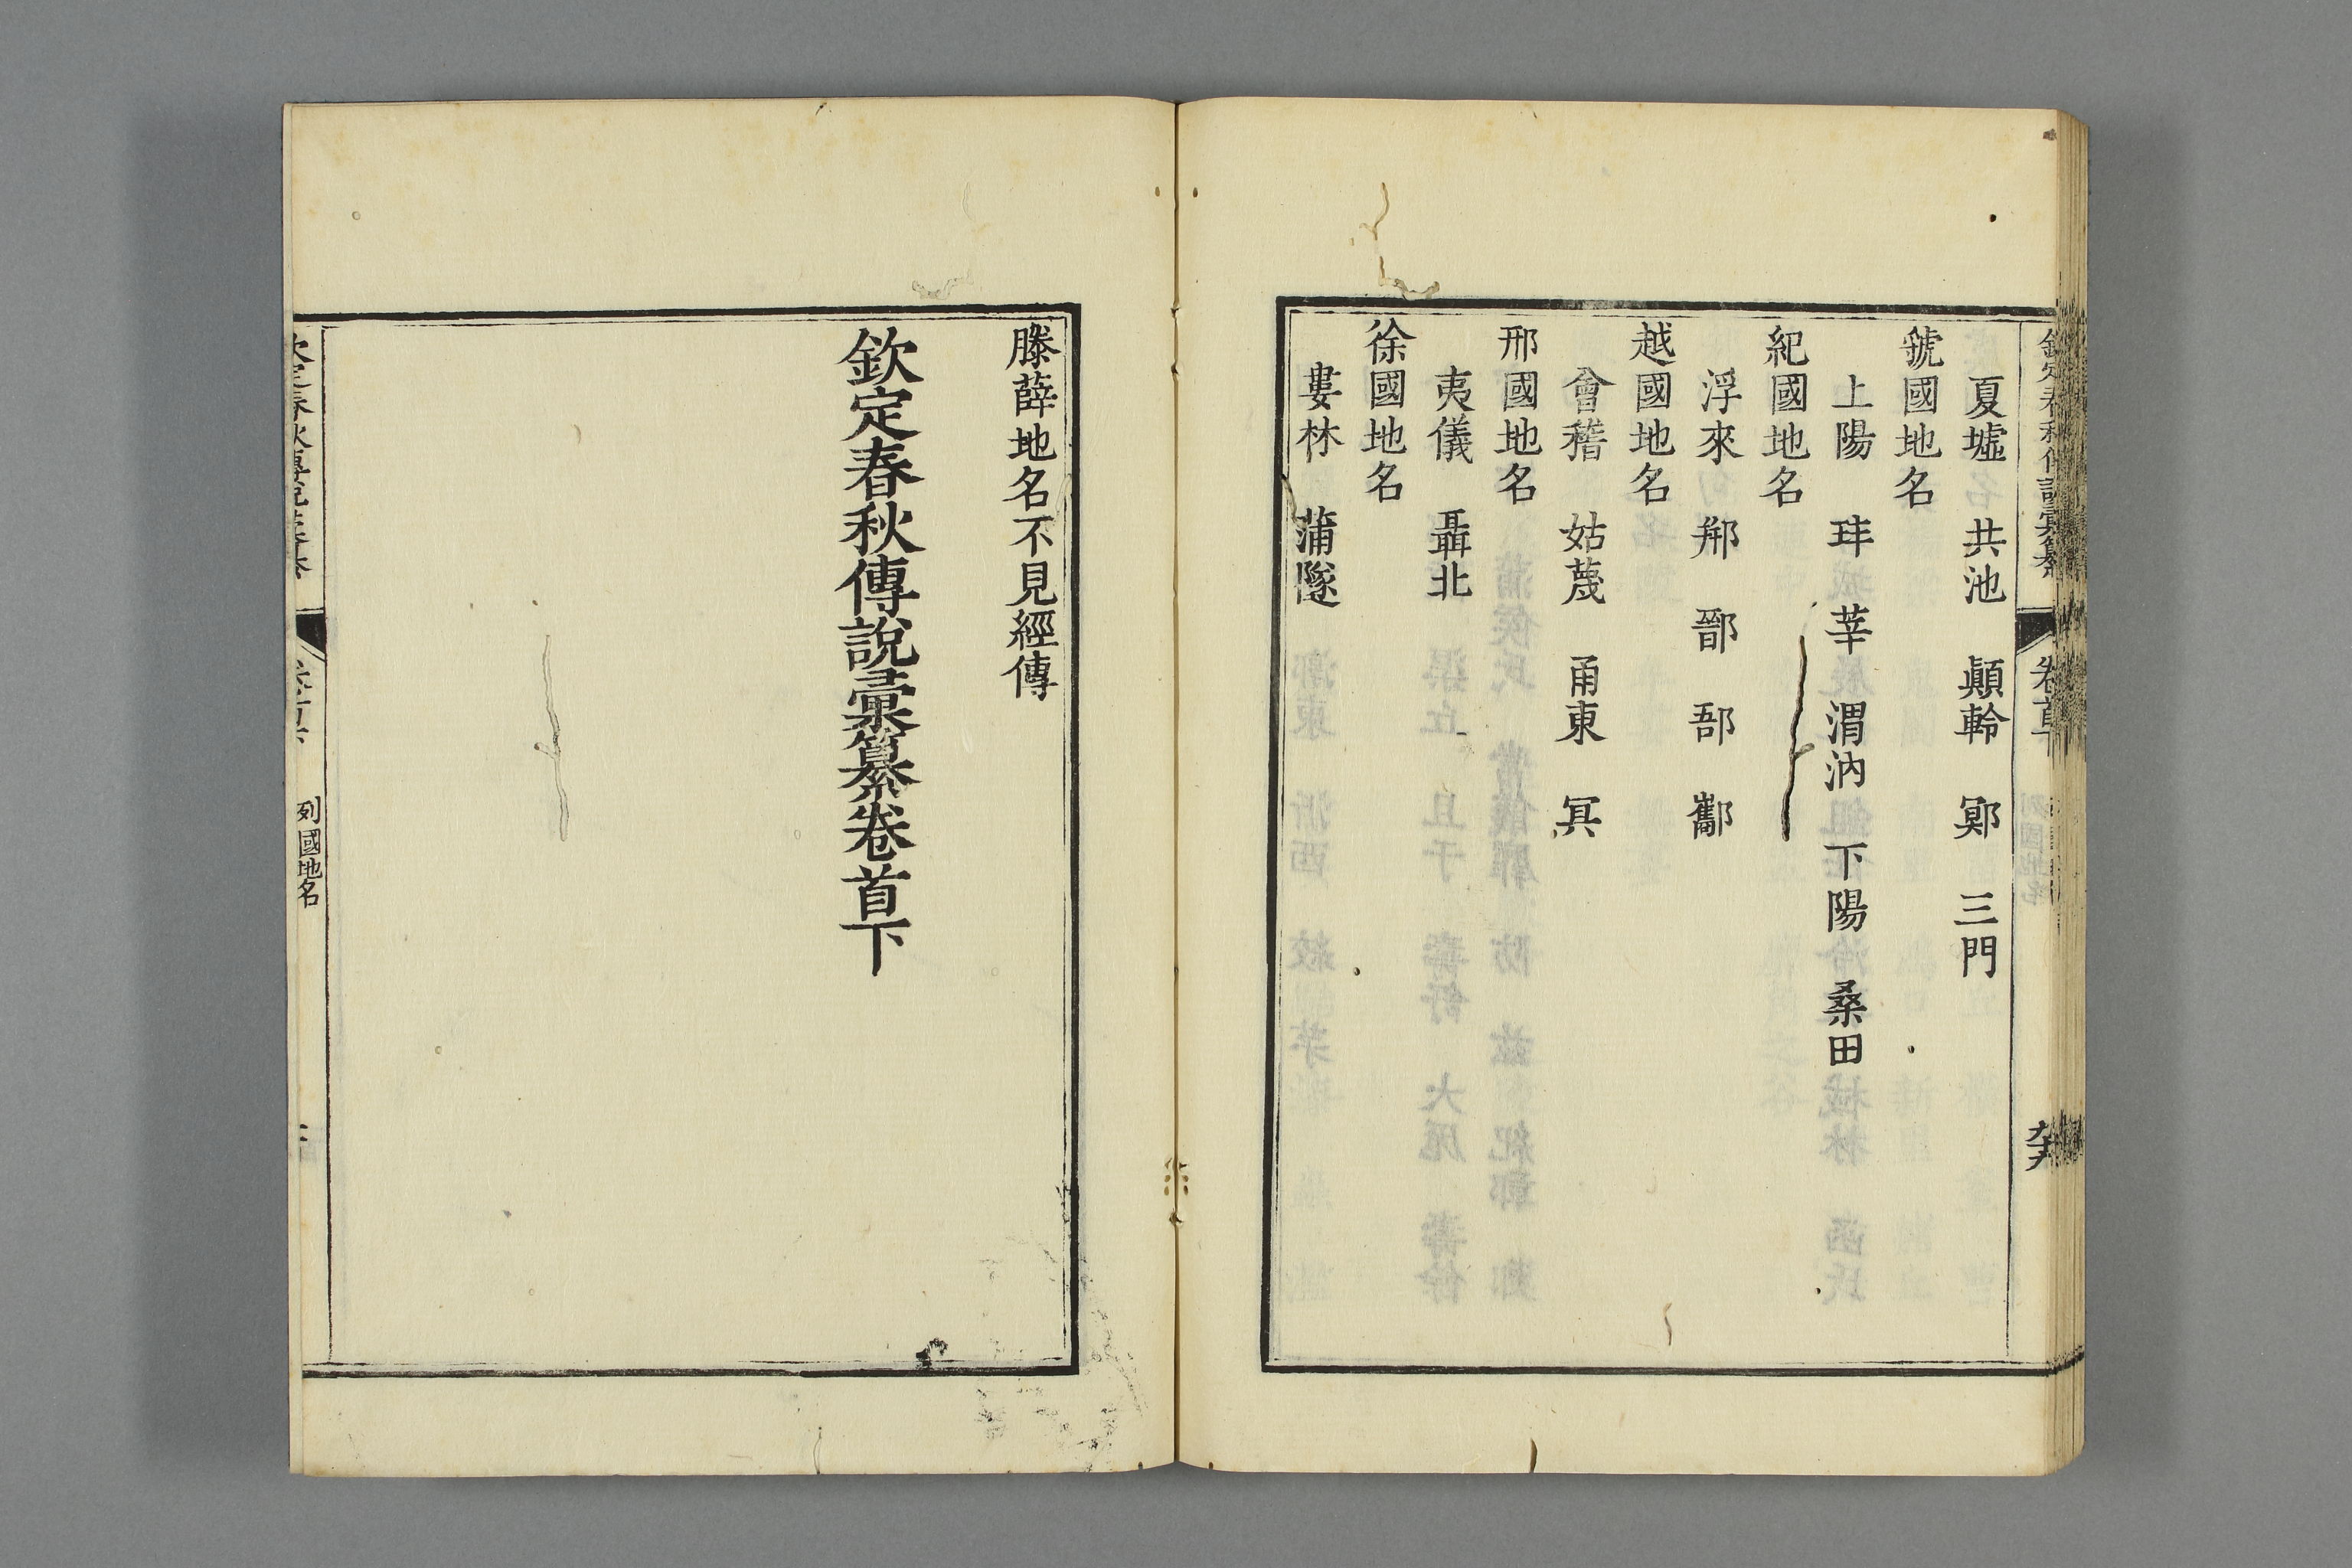 夏墟 共池 顚軨 鄍 三門
虢國地名
上陽 玤 莘 渭汭 下陽 桑田
紀國地名
浮來 郱 鄑 郚 酅
越國地名
會稽 姑蔑 甬東 冥
邢國地名
夷儀 聶北
徐國地名
婁林 蒲隧
滕薛地名不見經傳
欽定春秋傳說彙纂卷首下
列國地名